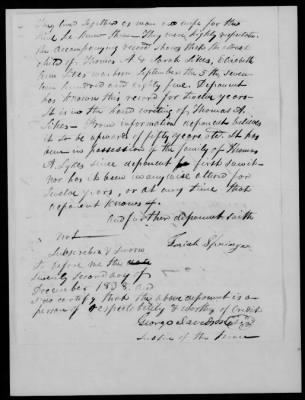 They lived together as man and wife for the
time he knew them - They were highly reputable.
The accompanying record shows that the oldest
child of Thomas A & Sarah Sikes, Elizabeth
Sikes was born September the 5th, seven
teen hundred and eighty five. Deponent
has known this record for twelve years -
It is in the hand writing of Thomas A.
Sikes - From information deponent believes
it to be upwards of fifty years old. It has
been in possession of the family of Thomas
A Sykes since deponent first saw it -
Nor has it been in any wise altered for
twelve years, or at any time that
deponent knows of.
And further deponent saith
not
Josiah Springer
Subscribed & sworn
to before me this
twenty second day of
December 1838. and
I do certify that the above deponent is a
person of respectability & worthy of credit
George Davidson
Justice of the Peace